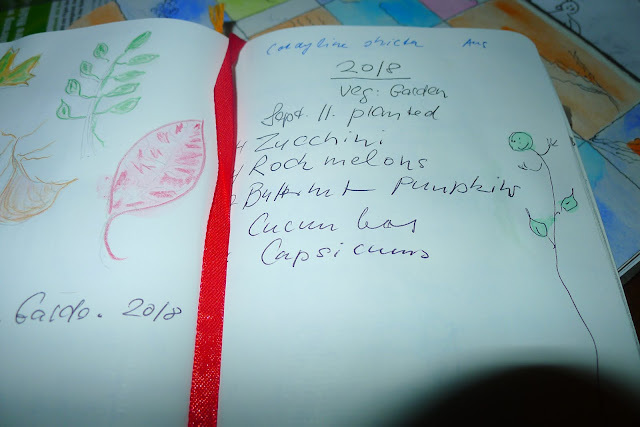 Cordyline stricta Aus
2018
Veg: Garden
Sept. 11. planted
Zucchini
Rockmelons
Butternut Pumpkins
Cucumbers
Capsicums
2018